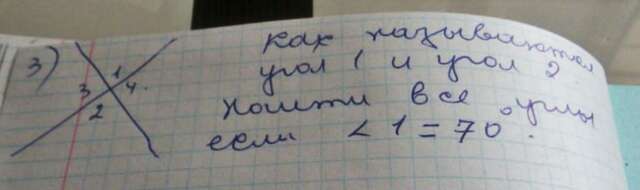 3)
1
3
4.
2
как называются
угол 1 и угол 2
найти все углы
если <1=70°.